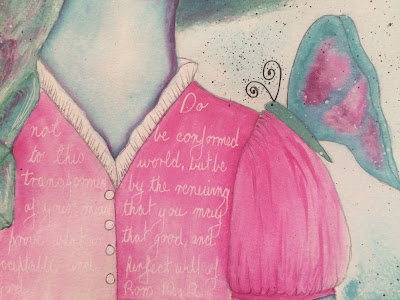 Do
not be conformed
to this world, but be
transformed by the renewing
of your mind that you may
prove what is that good, and
acceptable, and perfect will of
Rom. 12:2